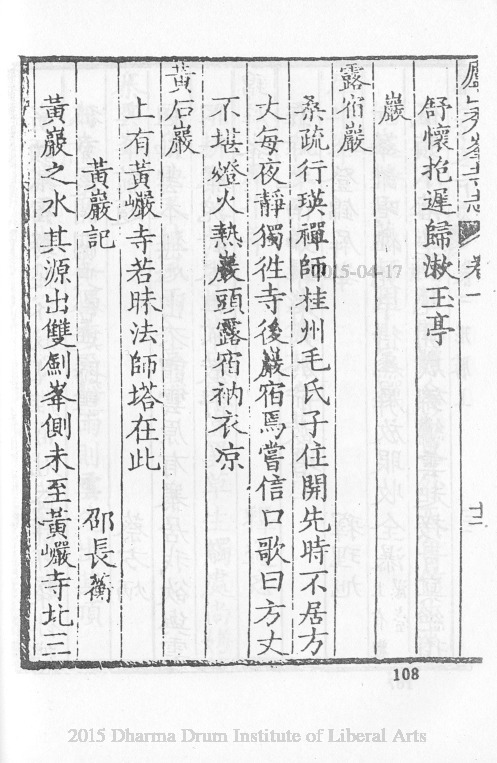 廬山秀峯寺志 卷一 十二
舒懷抱遲歸漱玉亭
巖
露宿巖
桑疏行瑛禪師桂州毛氏子住開先時不居方
丈每夜靜獨徃寺後巖宿焉嘗信口歌曰方丈
不堪燈火熱巖頭露宿衲衣凉
黃石巖
上有黃巖寺若昧法師塔在此
黃巖記 邵長蘅
黃巖之水其源出雙劍峯側未至黃巖寺圠三
2015-04-17
108
2015 Dharma Drum Institute of Liberal Arts